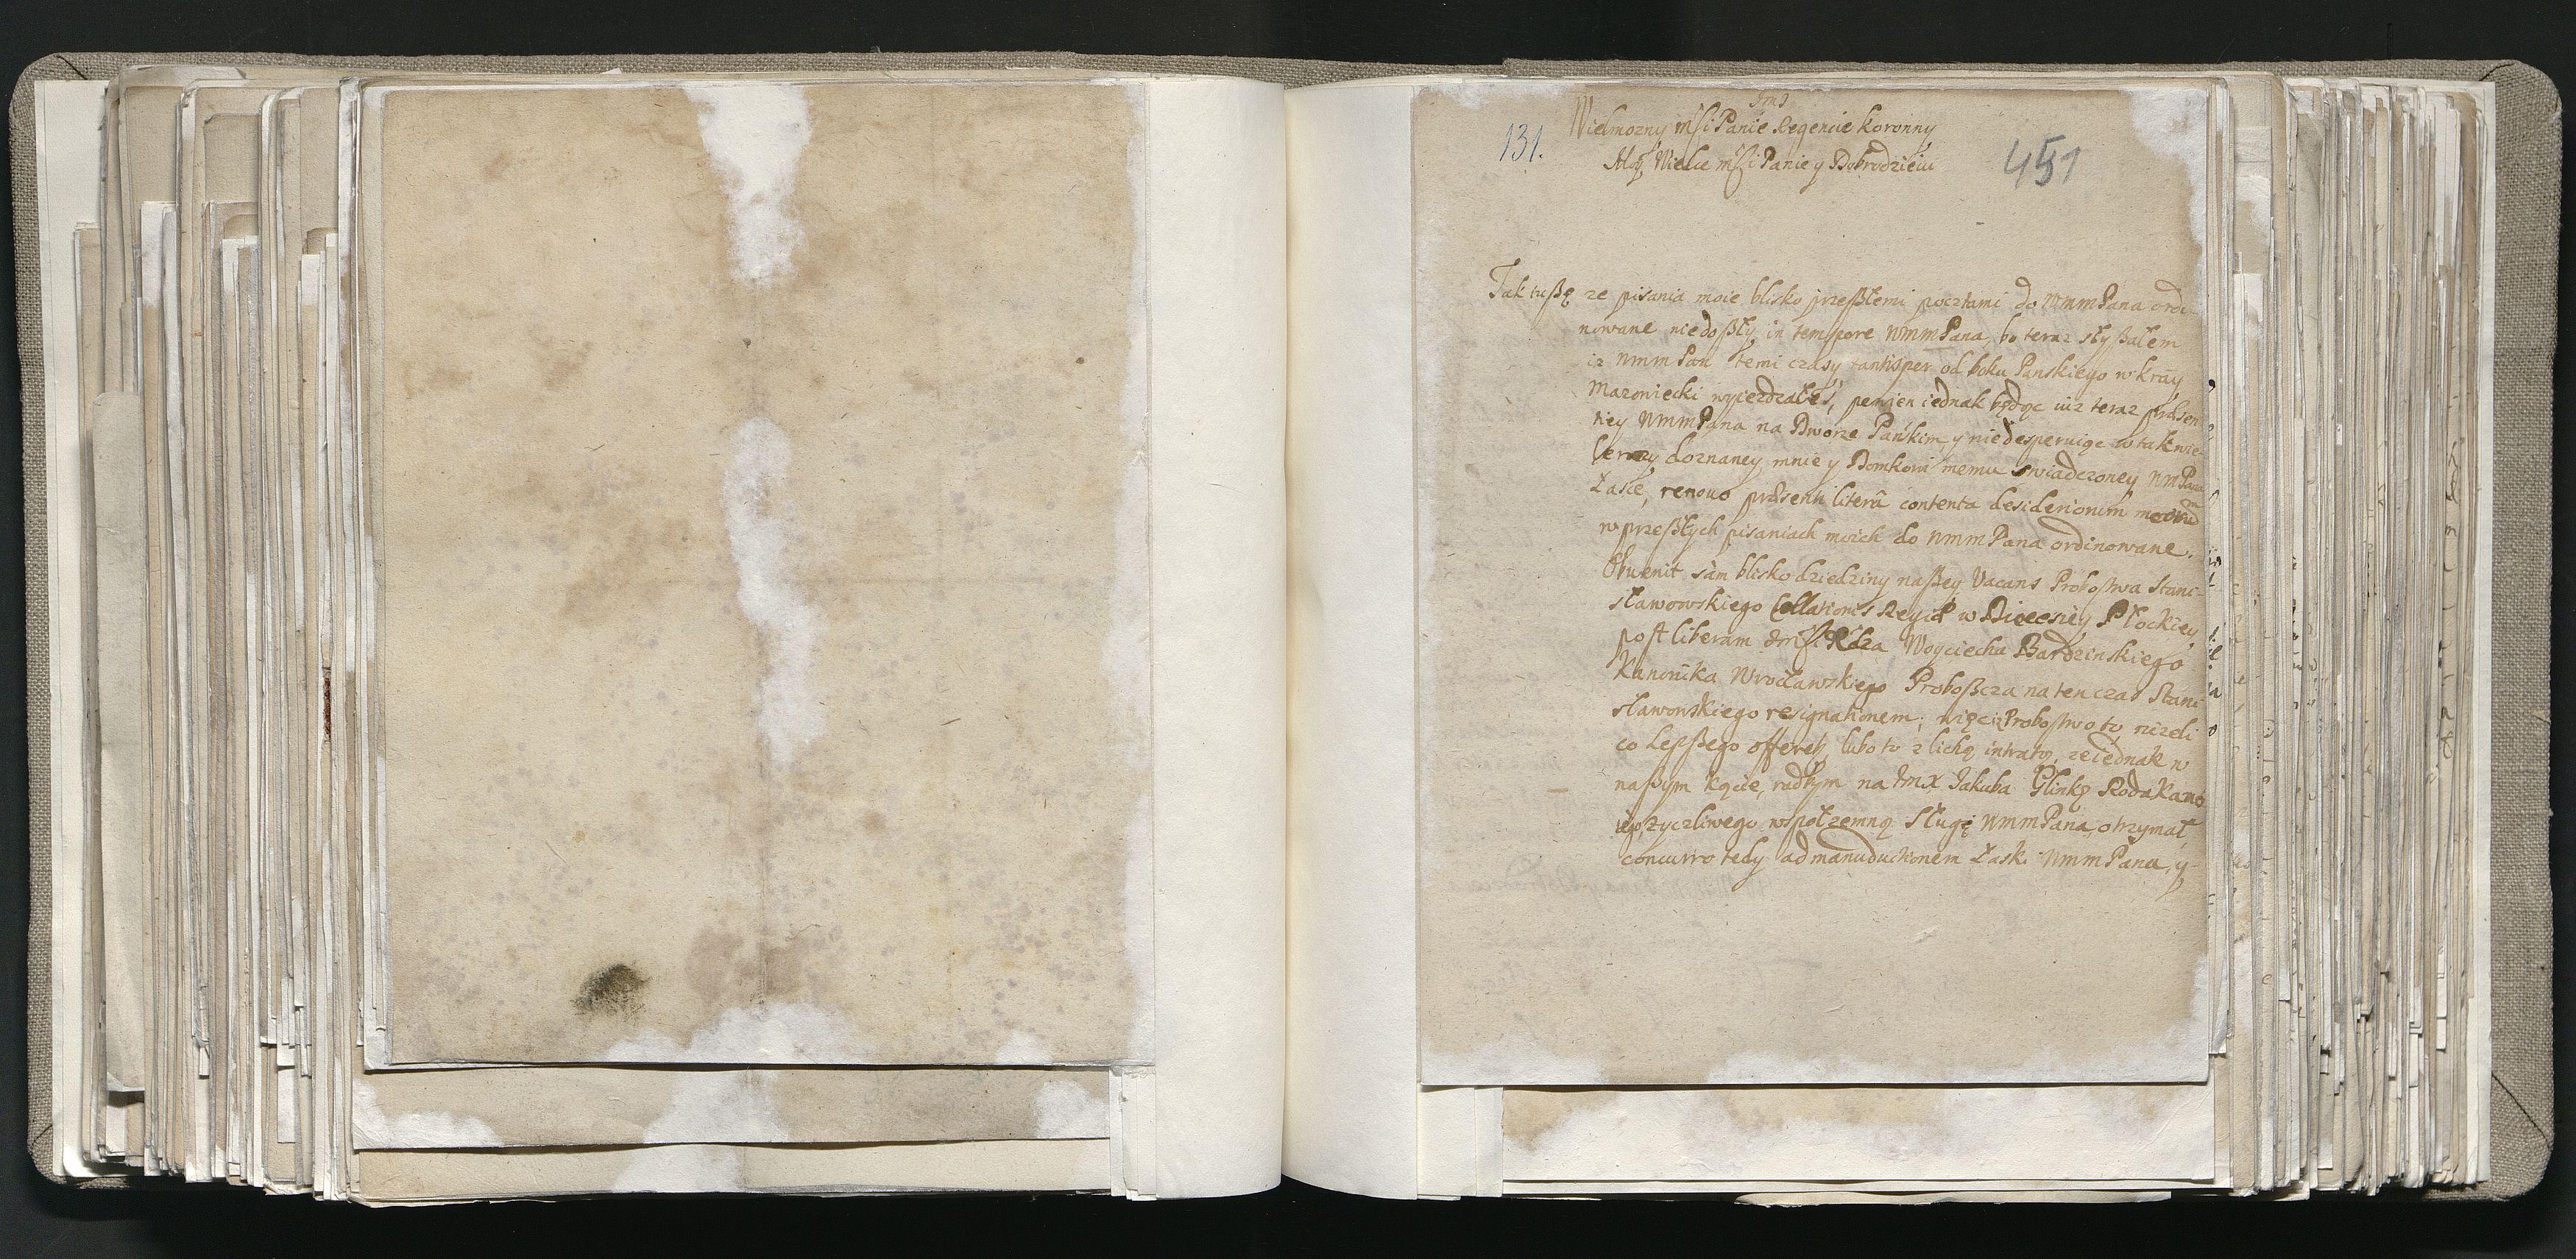 Jms
131. Wielmozny mśi Panie Regencie Koronny
451
Mq Wielce mśi Panie y Dobrodzieiu
Tak tußę ze pisania moie blisko przeßłemi pocztami do WmmPana ordi
nowane niedoßły in tempore WmmPana, bo teraz słyßałem
iz WmmPan temi czasy tantisper od boku Panskiego w kray
Mazowiecki wyiezdzałeś, pewien iednak będąc iuz teraz præsen
tiey WmmPana na Dworze Pańskim y niedesperuiąc w tak wie
doznaney mnie y Domkowi memu swiadczoney WmPana
Łasce, renouo præsenti literâ contenta desideriorum
w przeßłych pisaniach moich do WmmPana ordinowane.
Obuenit sàm blisko dziedziny naßey Vacans Probostwa Stani-
sławowskiego Collationis Regiæ w Diecesiey Płockiey
post liberam JmśiXdza Woyciecha Bardzinskiego
Kanonika Wrocławskiego Proboßcza na ten czas Stani
sławowskiego resignationem; więc iz Probostwo to, nizeli
co Lepßego offeret, lubo to z lichą intratą, ze iednak w
naßym kącie, radbym na JmX Jakuba Glinkę Roda Kano
iego, zyczliwego wspołzemną Sługę WmmPana, otrzymał,
concurro tedy ad manuductionem Łaski WmmPana, y-